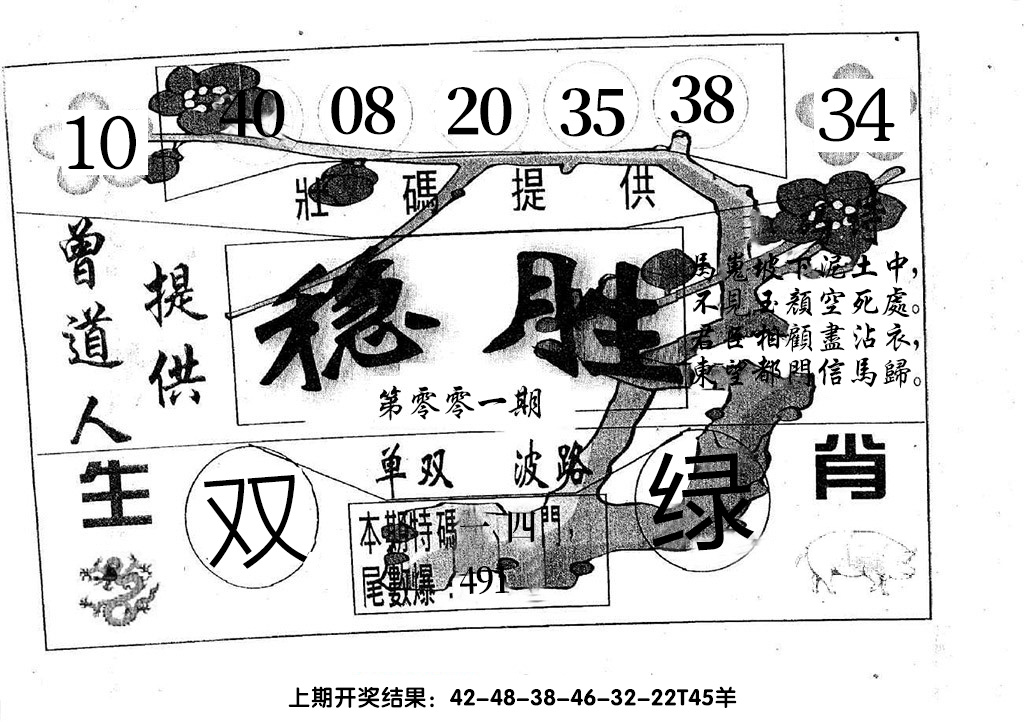 10 40 08 20 35 38 34
壯碼提供
曾道人
提供
稳胜
第零零一期
特
馬嵬坡下泥土中,
不見玉顏空死處。
君臣相顧盡沾衣,
東望都門信馬歸。
单双 波路
生 肖
双 绿
本期特碼一、四門,
尾數爆:491
上期开奖结果:42-48-38-46-32-22T45羊